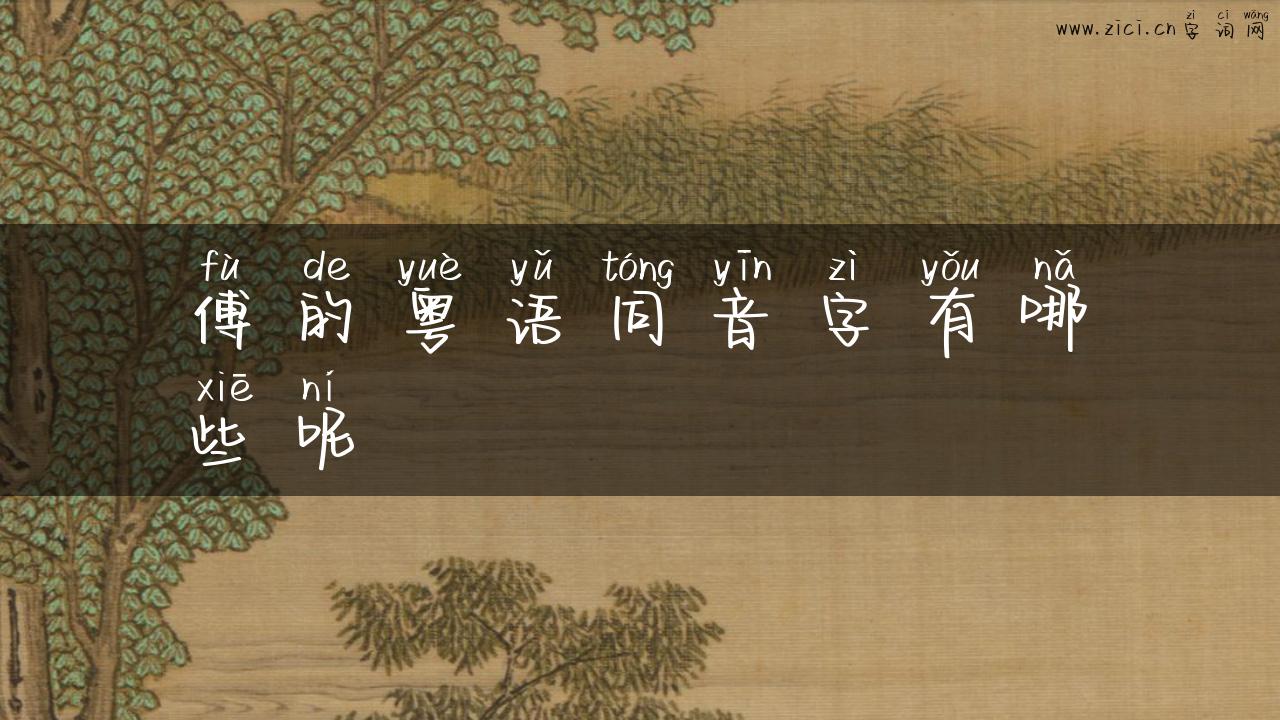 zì cí wǎng
www.zici.cn字词网
fù de yuè yǔ tóng yīn zì yǒu nǎ
傅的粤语同音字有哪
xiē ní
些呢